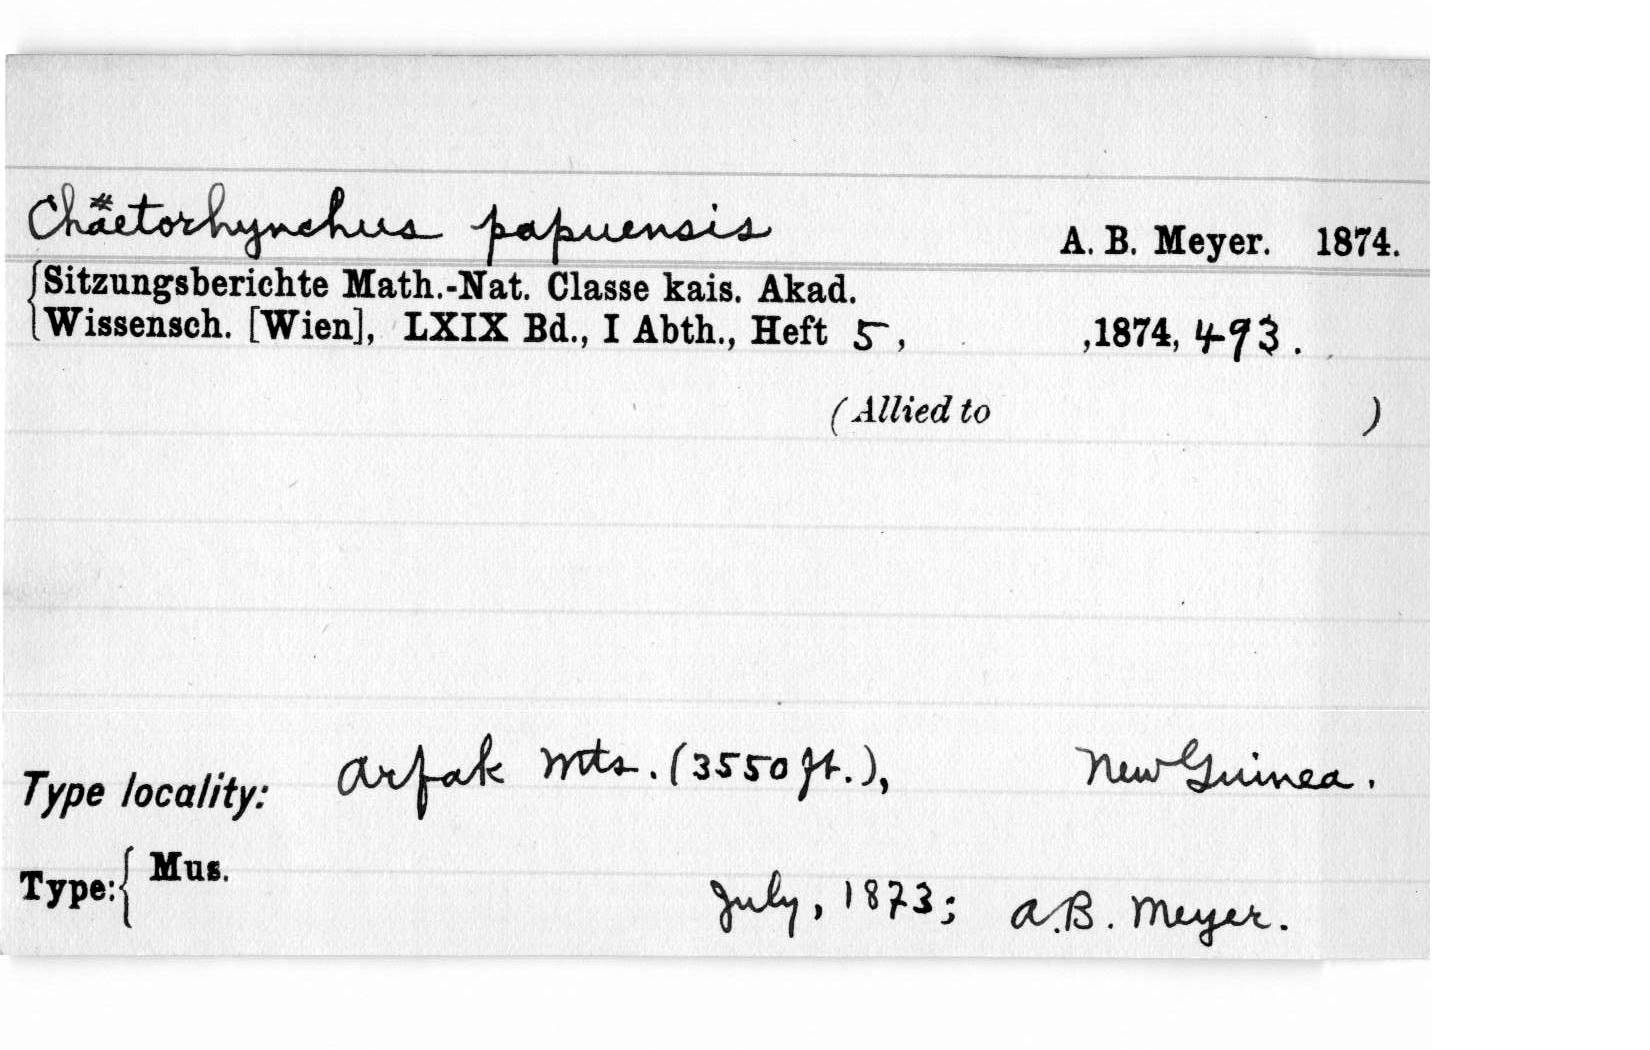 Chäetorhynchus papuensis A. B. Meyer. 1874.
Sitzungsberichte Math.-Nat. Classe kais. Akad.
Wissensch. [Wien], LXIX Bd., I Abth., Heft 5, ,1874, 493.
(Allied to )
Type locality: Arfak Mts. (3550 ft.), New Guinea.
Type: Mus.
July, 1873; A.B. Meyer.